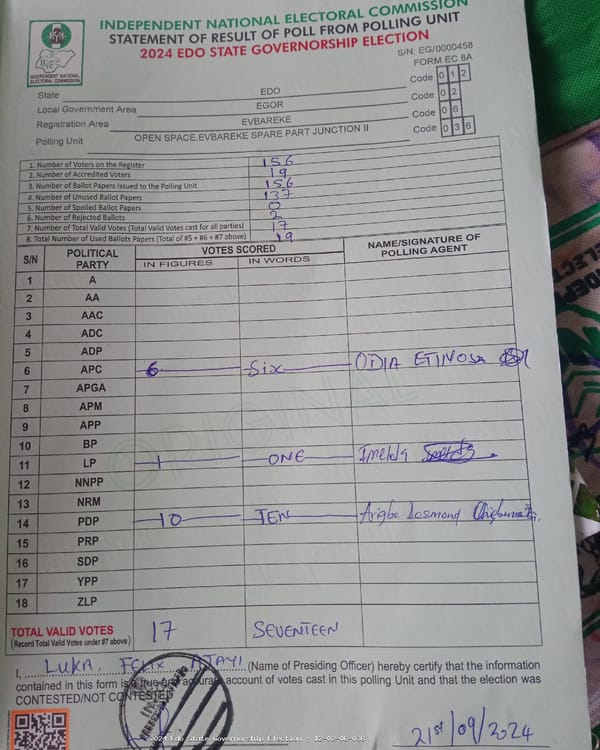 INDEPENDENT NATIONAL ELECTORAL COMMISSION
STATEMENT OF RESULT OF POLL FROM POLLING UNIT
2024 EDO STATE GOVERNORSHIP ELECTION
INEC
INDEPENDENT NATIONAL ELECTORAL COMMISSION
S/N: EG/0000458
FORM EC 8A
State EDO Code 0 1 2
Local Government Area EGOR Code 0 2
Registration Area EVBAREKE Code 0 6
Polling Unit OPEN SPACE,EVBAREKE SPARE PART JUNCTION II Code 0 3 6
1. Number of Voters on the Register 156
2. Number of Accredited Voters 19
3. Number of Ballot Papers Issued to the Polling Unit 156
4. Number of Unused Ballot Papers 137
5. Number of Spoiled Ballot Papers 0
6. Number of Rejected Ballots 2
7. Number of Total Valid Votes (Total Valid Votes cast for all parties) 17
8. Total Number of Used Ballots Papers (Total of #5 + #6 + #7 above) 19
S/N POLITICAL PARTY VOTES SCORED NAME/SIGNATURE OF POLLING AGENT
IN FIGURES IN WORDS
1 A
2 AA
3 AAC
4 ADC
5 ADP
6 APC 6 Six ODIA ETINOSA
7 APGA
8 APM
9 APP
10 BP
11 LP 1 ONE Imelda
12 NNPP
13 NRM
14 PDP 10 TEN Arigbe Desmond
15 PRP
16 SDP
17 YPP
18 ZLP
ORIGINAL
TOTAL VALID VOTES 17 SEVENTEEN
(Record Total Valid Votes under #7 above)
I, LUKA, FELIX AJAYI (Name of Presiding Officer) hereby certify that the information
contained in this form is a true and accurate account of votes cast in this polling Unit and that the election was
CONTESTED/NOT CONTESTED
21st/09/2024
2024 Edo State Governorship Election - 12-02-06-036